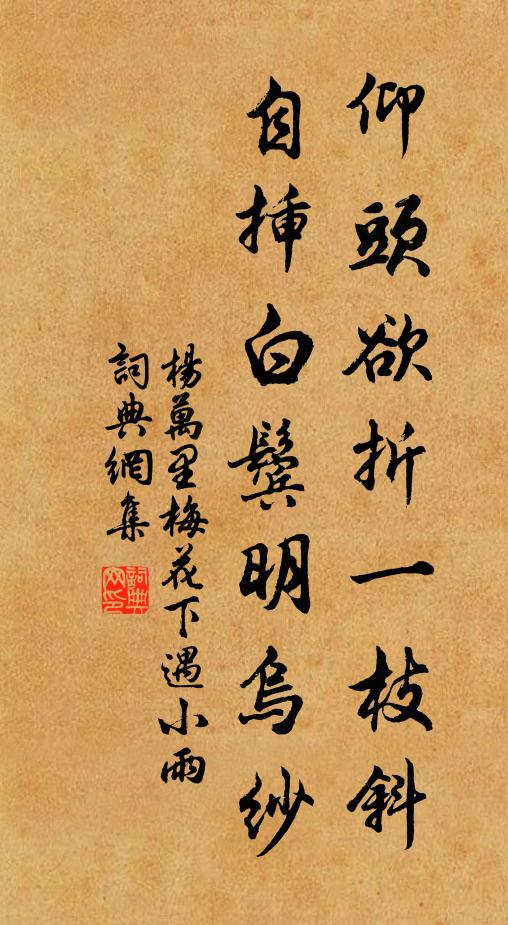 仰頭欲折一枝斜
自挿白鬓明烏紗
楊萬里梅花下遇小雨
詞典網集
詞典网印